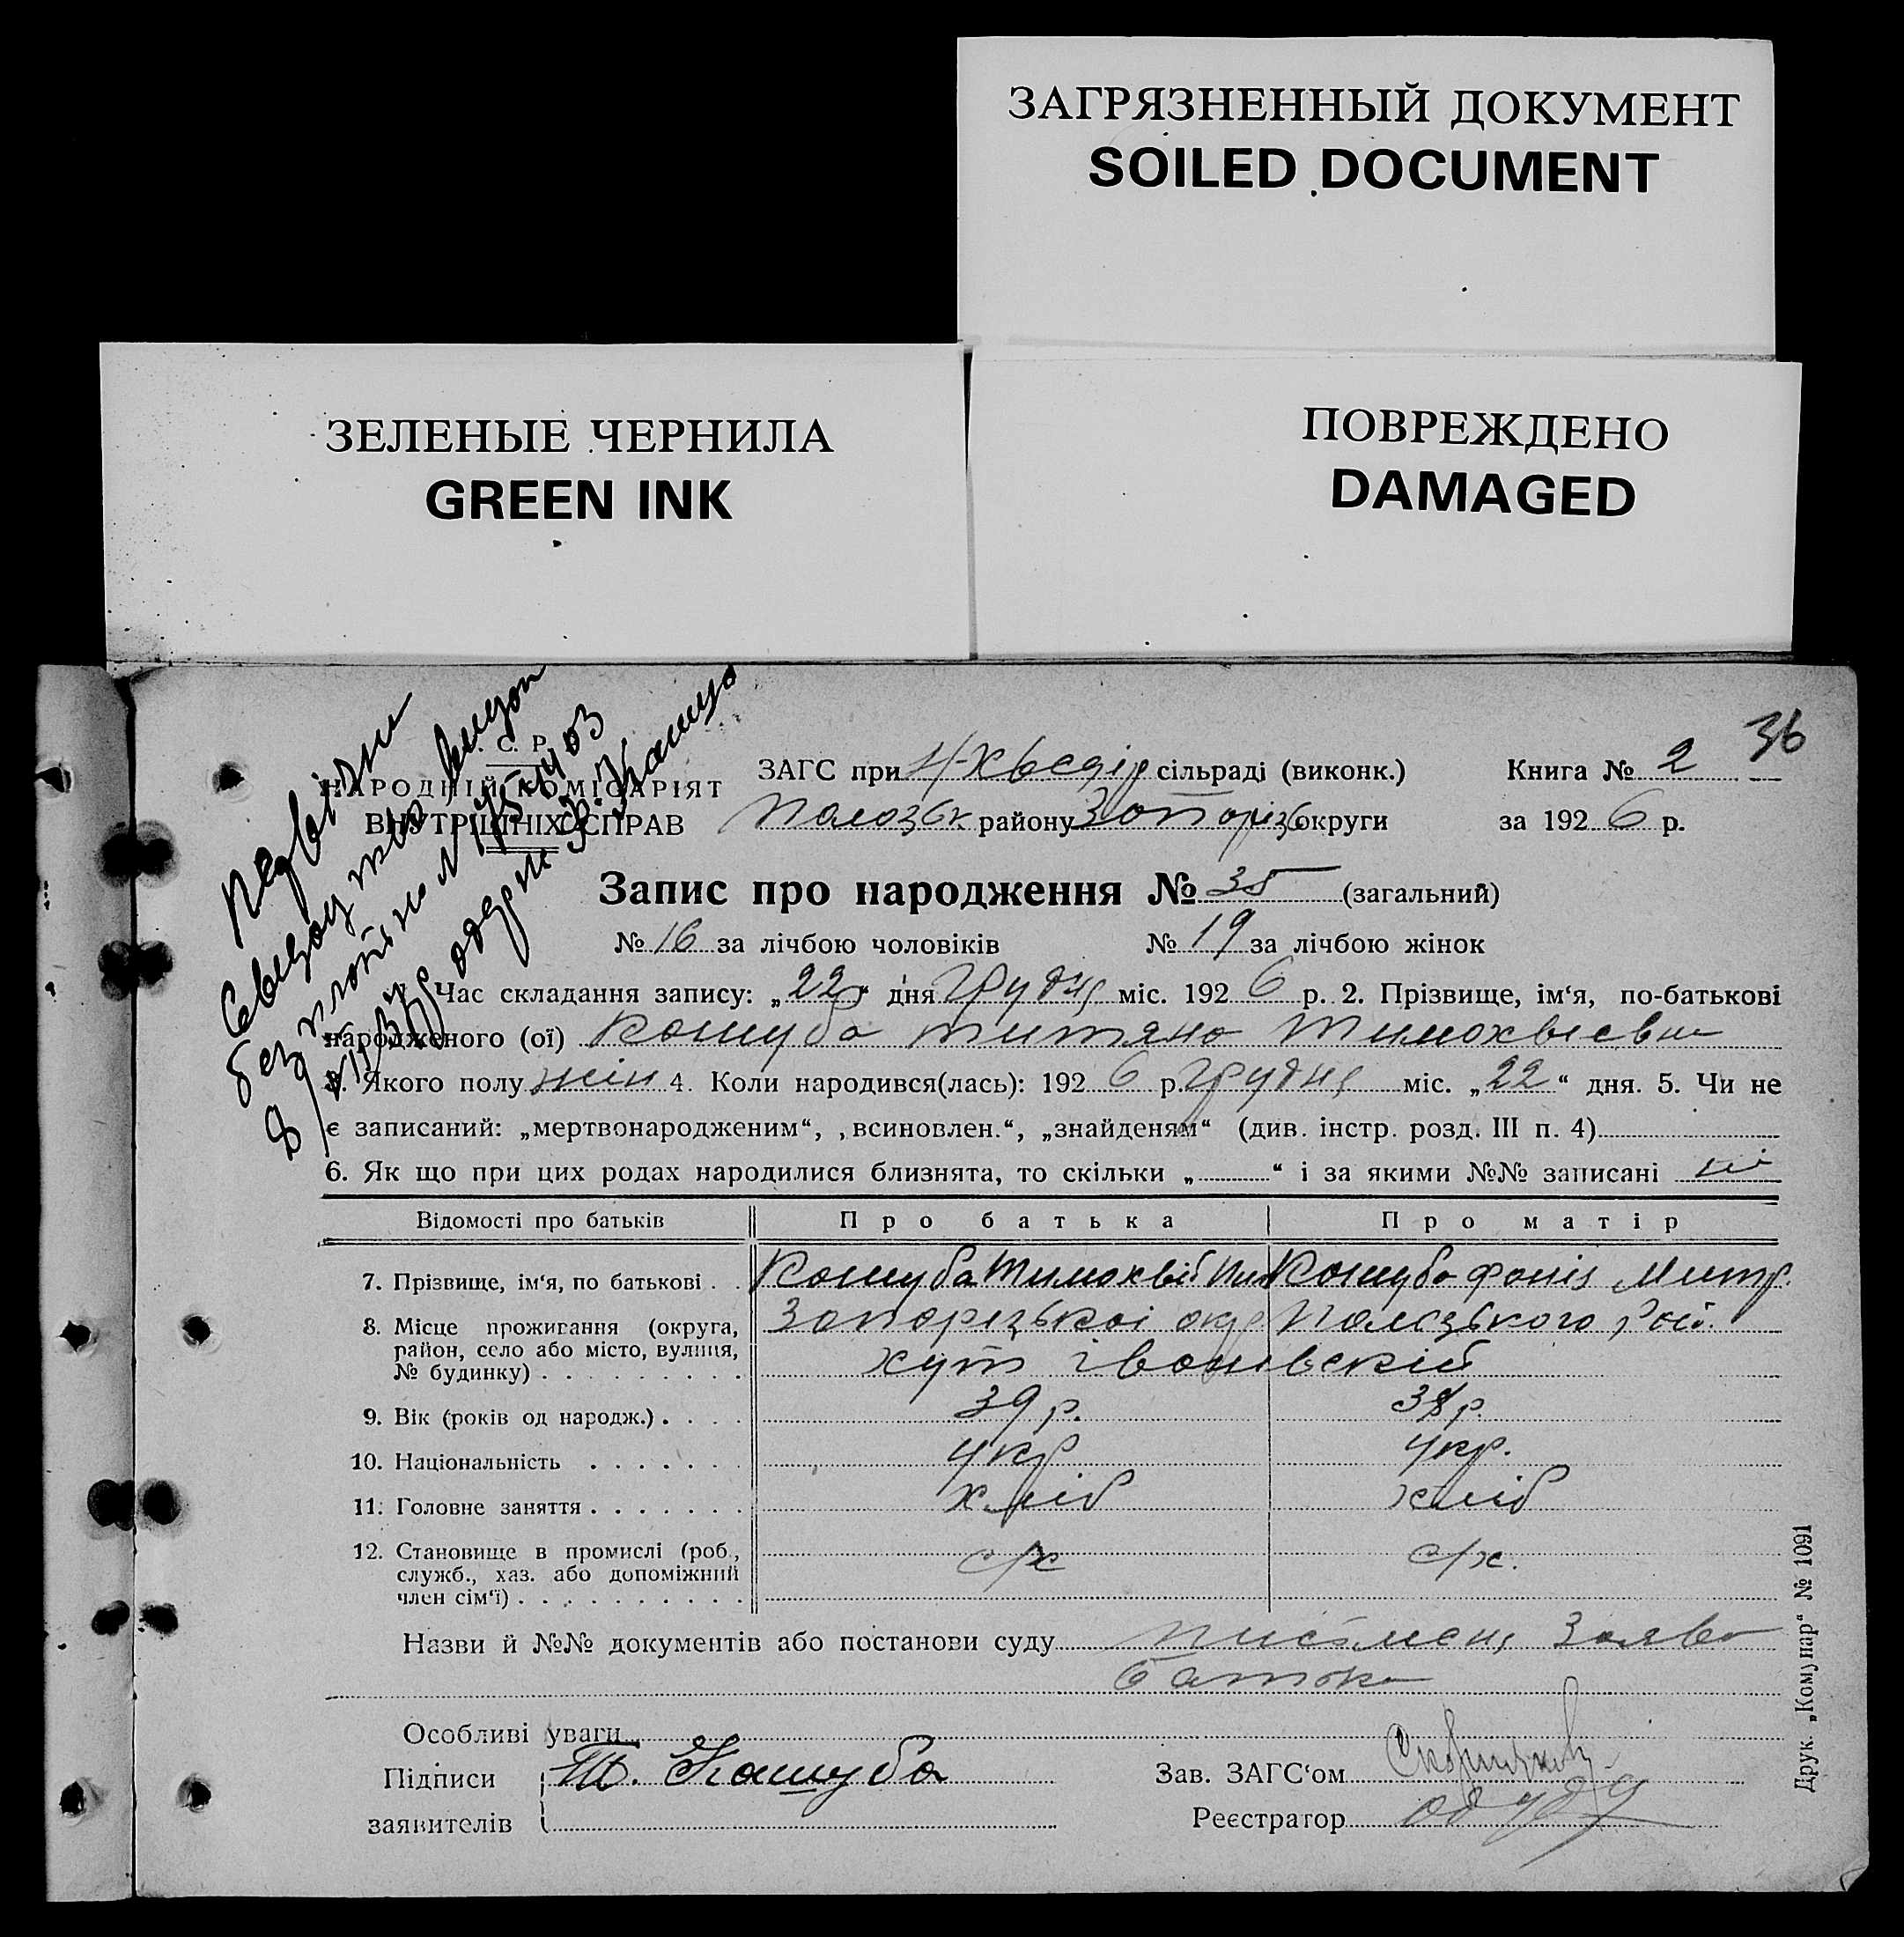 ЗАГРЯЗНЕННЫЙ ДОКУМЕНТ
SOILED DOCUMENT
ЗЕЛЕНЫЕ ЧЕРНИЛА
GREEN INK
ПОВРЕЖДЕНО
DAMAGED
36
С. Р.
НАРОДНІЙ КОМІСАРІЯТ
ВНУТРІШНІХ СПРАВ
ЗАГС при сільраді (виконк.) Книга № 2
району округи за 192 6 р.
Запис про народження № 35 (загальний)
№ 16 за лічбою чоловіків № 19 за лічбою жінок
Час складання запису: „22“ дня грудня міс. 192 6 р. 2. Прізвище, ім‘я, по-батькові
народженого (ої) Кошуба
3. Якого полу жін 4. Коли народився(лась): 192 6 р. грудня міс. „22“ дня. 5. Чи не
є записаний: „мертвонародженим“, „всиновлен.“, „знайденям“ (див. інстр. розд. III п. 4)
6. Як що при цих родах народилися близнята, то скільки „ “ і за якими №№ записані ні
Відомості про батьків Про батька Про матір
7. Прізвище, ім‘я, по батькові . . Кошуба Тимохвій Кошуба Митр.
8. Місце проживання (округа, район, село або місто, вулиця, № будинку) Запорізькоі окр Пологського рай.
хут івонівскій
9. Вік (років од народж.) . . . . 39 р. 38 р.
10. Національність . . . . . . . укр укр.
11. Головне заняття . . . . . . . хліб хліб
12. Становище в промислі (роб., служб., хаз. або допоміжний член сім‘ї) . . . . . . . . . с/х с/х.
Назви й №№ документів або постанови суду письмена заява
батька
Особливі уваги
Підписи Т. Кашуба Зав. ЗАГС‘ом
заявителів Реєстратор
Друк. „Комунар“ № 1091